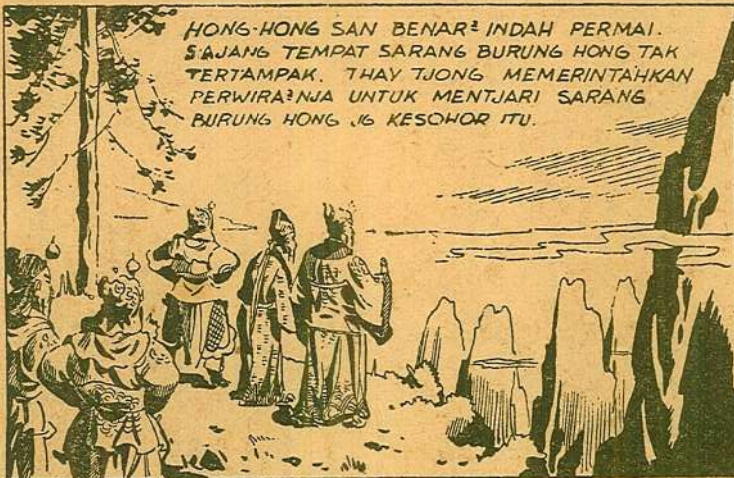 HONG-HONG SAN BENAR² INDAH PERMAI.
SAJANG TEMPAT SARANG BURUNG HONG TAK
TERTAMPAK. THAY TJONG MEMERINTAHKAN
PERWIRA²NJA UNTUK MENTJARI SARANG
BURUNG HONG JG KESOHOR ITU.